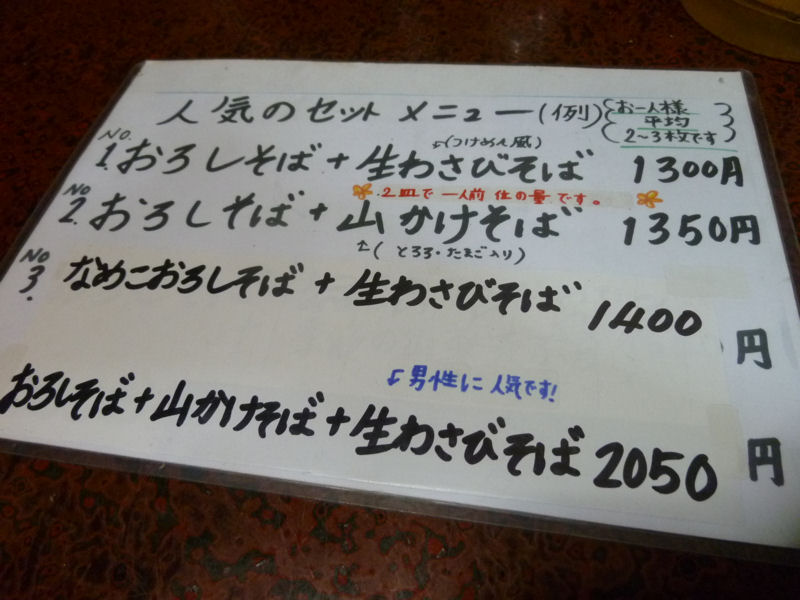 人気のセットメニュー(例)
お一人様
平均
2～3枚です
←(つけめん風)
No.
1.おろしそば+生わさびそば 1300円
2皿で一人前位の量です。
No
2.おろしそば+山かけそば 1350円
↑(とろろ・たまご入り)
No
3.なめこおろしそば+生わさびそば 1400円
←男性に人気です!
おろしそば+山かけそば+生わさびそば 2050円